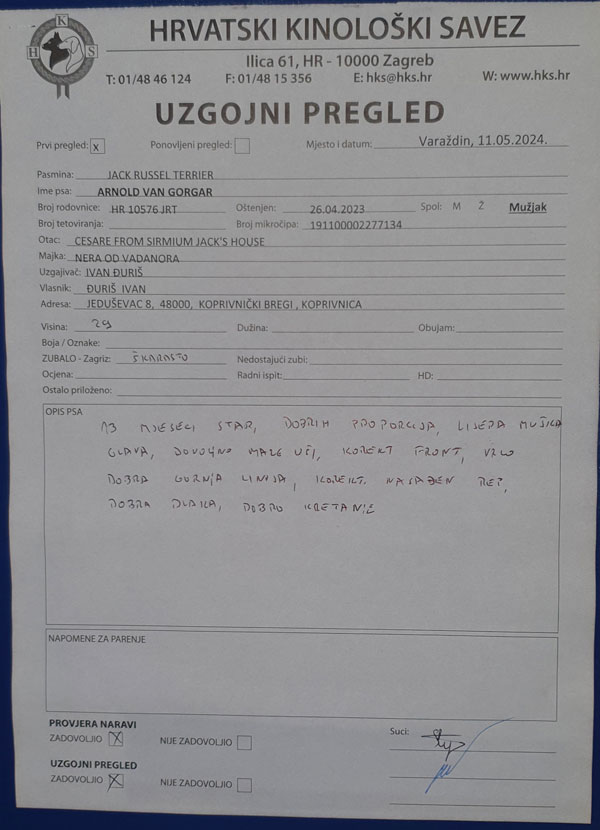 HRVATSKI KINOLOŠKI SAVEZ
H K S
Ilica 61, HR - 10000 Zagreb
T: 01/48 46 124 F: 01/48 15 356 E: hks@hks.hr W: www.hks.hr
UZGOJNI PREGLED
Prvi pregled: x Ponovljeni pregled: Mjesto i datum: Varaždin, 11.05.2024.
Pasmina: JACK RUSSEL TERRIER
Ime psa: ARNOLD VAN GORGAR
Broj rodovnice: HR 10576 JRT Oštenjen: 26.04.2023 Spol: M Ž Mužjak
Broj tetoviranja: Broj mikročipa: 191100002277134
Otac: CESARE FROM SIRMIUM JACK'S HOUSE
Majka: NERA OD VADANORA
Uzgajivač: IVAN ĐURIŠ
Vlasnik: ĐURIŠ IVAN
Adresa: JEDUŠEVAC 8, 48000, KOPRIVNIČKI BREGI , KOPRIVNICA
Visina: 29 Dužina: Obujam:
Boja / Oznake:
ZUBALO - Zagriz: ŠKARASTO Nedostajući zubi:
Ocjena: Radni ispit: HD:
Ostalo priloženo:
OPIS PSA
13 MJESECI STAR, DOBRIH PROPORCIJA, LIJEPA MUŠKA
GLAVA, DOVOLJNO MALE UŠI, KOREKT FRONT, VRLO
DOBRA GORNJA LINIJA, KOREKT. NASAĐEN REP,
DOBRA DLAKA, DOBRO KRETANJE
NAPOMENE ZA PARENJE
PROVJERA NARAVI
ZADOVOLJIO X NIJE ZADOVOLJIO
Suci:
UZGOJNI PREGLED
ZADOVOLJIO X NIJE ZADOVOLJIO